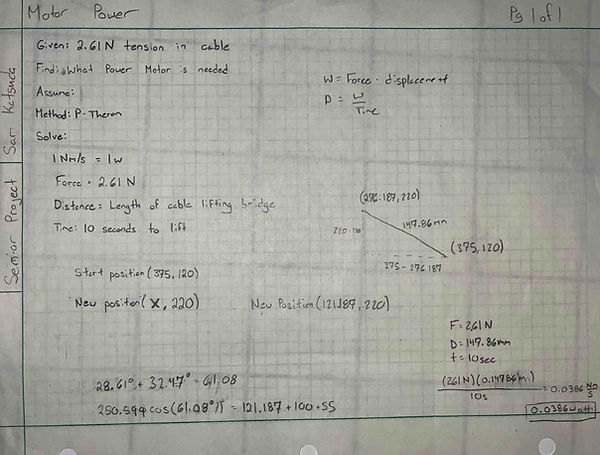 Motor Power Pg 1 of 1
Senior Project Sar Katsura
Given: 2.61 N tension in cable
Find: What Power Motor is needed
Assume:
Method: P-Theron
Solve:
W = Force · displacement
P = W
Time
1 Nm/s = 1w
Force = 2.61 N
Distance = Length of cable lifting bridge
Time: 10 seconds to lift
(276.187, 220)
147.86mm
220-120
(375, 120)
375 - 276.187
Start position (375, 120)
New position (X, 220) New Position (121.187, 220)
F = 2.61 N
D = 147.86mm
t = 10sec
28.61° + 32.47° = 61.08
250.594 cos(61.08°) = 121.187 + 100 + 55
(2.61 N)(0.14786m) = 0.0386 Nm
10s S
0.0386 watt